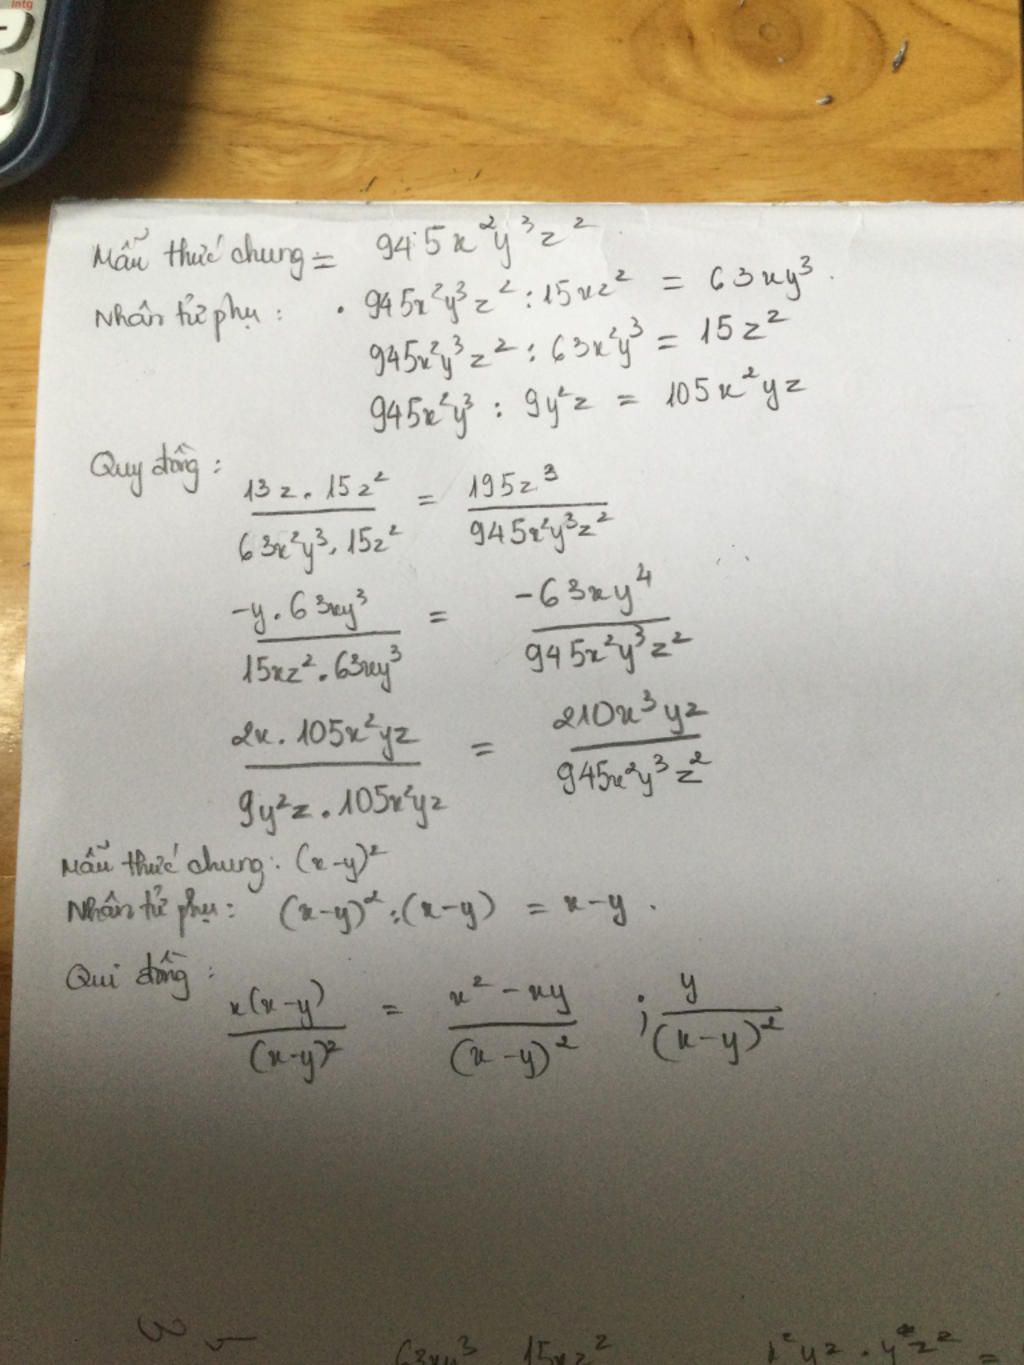 intg
Mẫu thức chung = 945x²y³z²
Nhân tử phụ : • 945x²y³z² : 15xz² = 63xy³.
945x²y³z² : 63x²y³ = 15z²
945x²y³ : 9y²z = 105x²yz
Quy đồng :
13z . 15z² / 63x²y³ . 15z² = 195z³ / 945x²y³z²
-y . 63xy³ / 15xz² . 63xy³ = -63xy⁴ / 945x²y³z²
2x . 105x²yz / 9y²z . 105x²yz = 210x³yz / 945x²y³z²
Mẫu thức chung : (x-y)²
Nhân tử phụ : (x-y)² : (x-y) = x-y .
Qui đồng : x(x-y) / (x-y)² = x² - xy / (x-y)² ; y / (x-y)²
63xy³ 15xz²